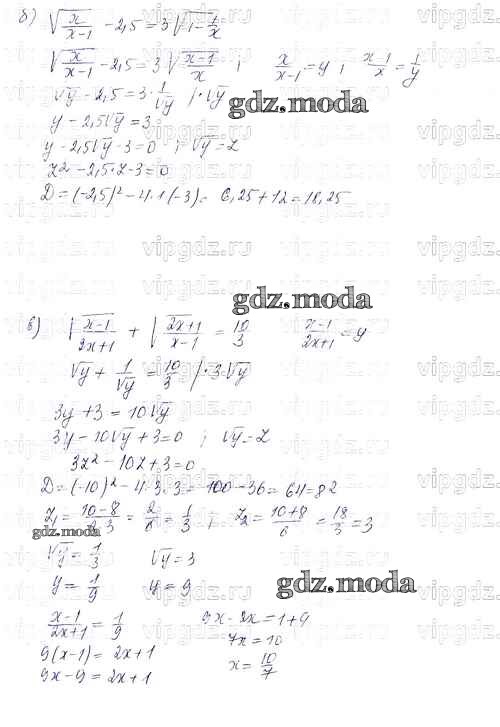 б) √(x/(x-1)) - 2,5 = 3√(1 - 1/x)
√(x/(x-1)) - 2,5 = 3√((x-1)/x) ; x/(x-1) = y ; (x-1)/x = 1/y
√y - 2,5 = 3 · 1/√y | · √y
gdz.moda
y - 2,5√y = 3
y - 2,5√y - 3 = 0 ; √y = z
z² - 2,5·z - 3 = 0
D = (-2,5)² - 4·1·(-3) = 6,25 + 12 = 18,25
vipgdz.ru
gdz.moda
в) √((x-1)/(2x+1)) + √((2x+1)/(x-1)) = 10/3 (x-1)/(2x+1) = y
√y + 1/√y = 10/3 | · 3√y
3y + 3 = 10√y
3y - 10√y + 3 = 0 ; √y = z
3z² - 10z + 3 = 0
D = (-10)² - 4·3·3 = 100 - 36 = 64 = 82
z₁ = (10-8)/2·3 = 2/6 = 1/3 ; z₂ = (10+8)/6 = 18/3 = 3
gdz.moda
√y = 1/3 √y = 3
y = 1/9 y = 9
gdz.moda
(x-1)/(2x+1) = 1/9 9x - 2x = 1 + 9
9(x-1) = 2x + 1 7x = 10
9x - 9 = 2x + 1 x = 10/7